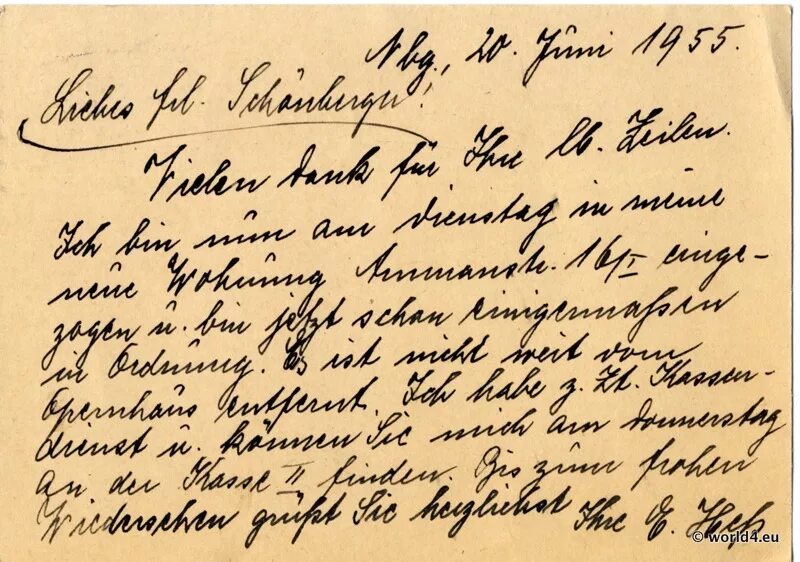 Nbg., 20. Juni 1955.
Liebes Frl. Schönberger!
Vielen Dank für Ihre lb. Zeilen.
Ich bin nun am Dienstag in meine
neue Wohnung Ammanstr. 16/I einge-
zogen u. bin jetzt schon einigermaßen
in Ordnung. Es ist nicht weit vom
Opernhaus entfernt. Ich habe z. Zt. Kassen-
dienst u. können Sie mich am Donnerstag
an der Kasse II finden. Bis zum frohen
Wiedersehen grüßt Sie herzlichst Ihre E. Heß
© world4.eu